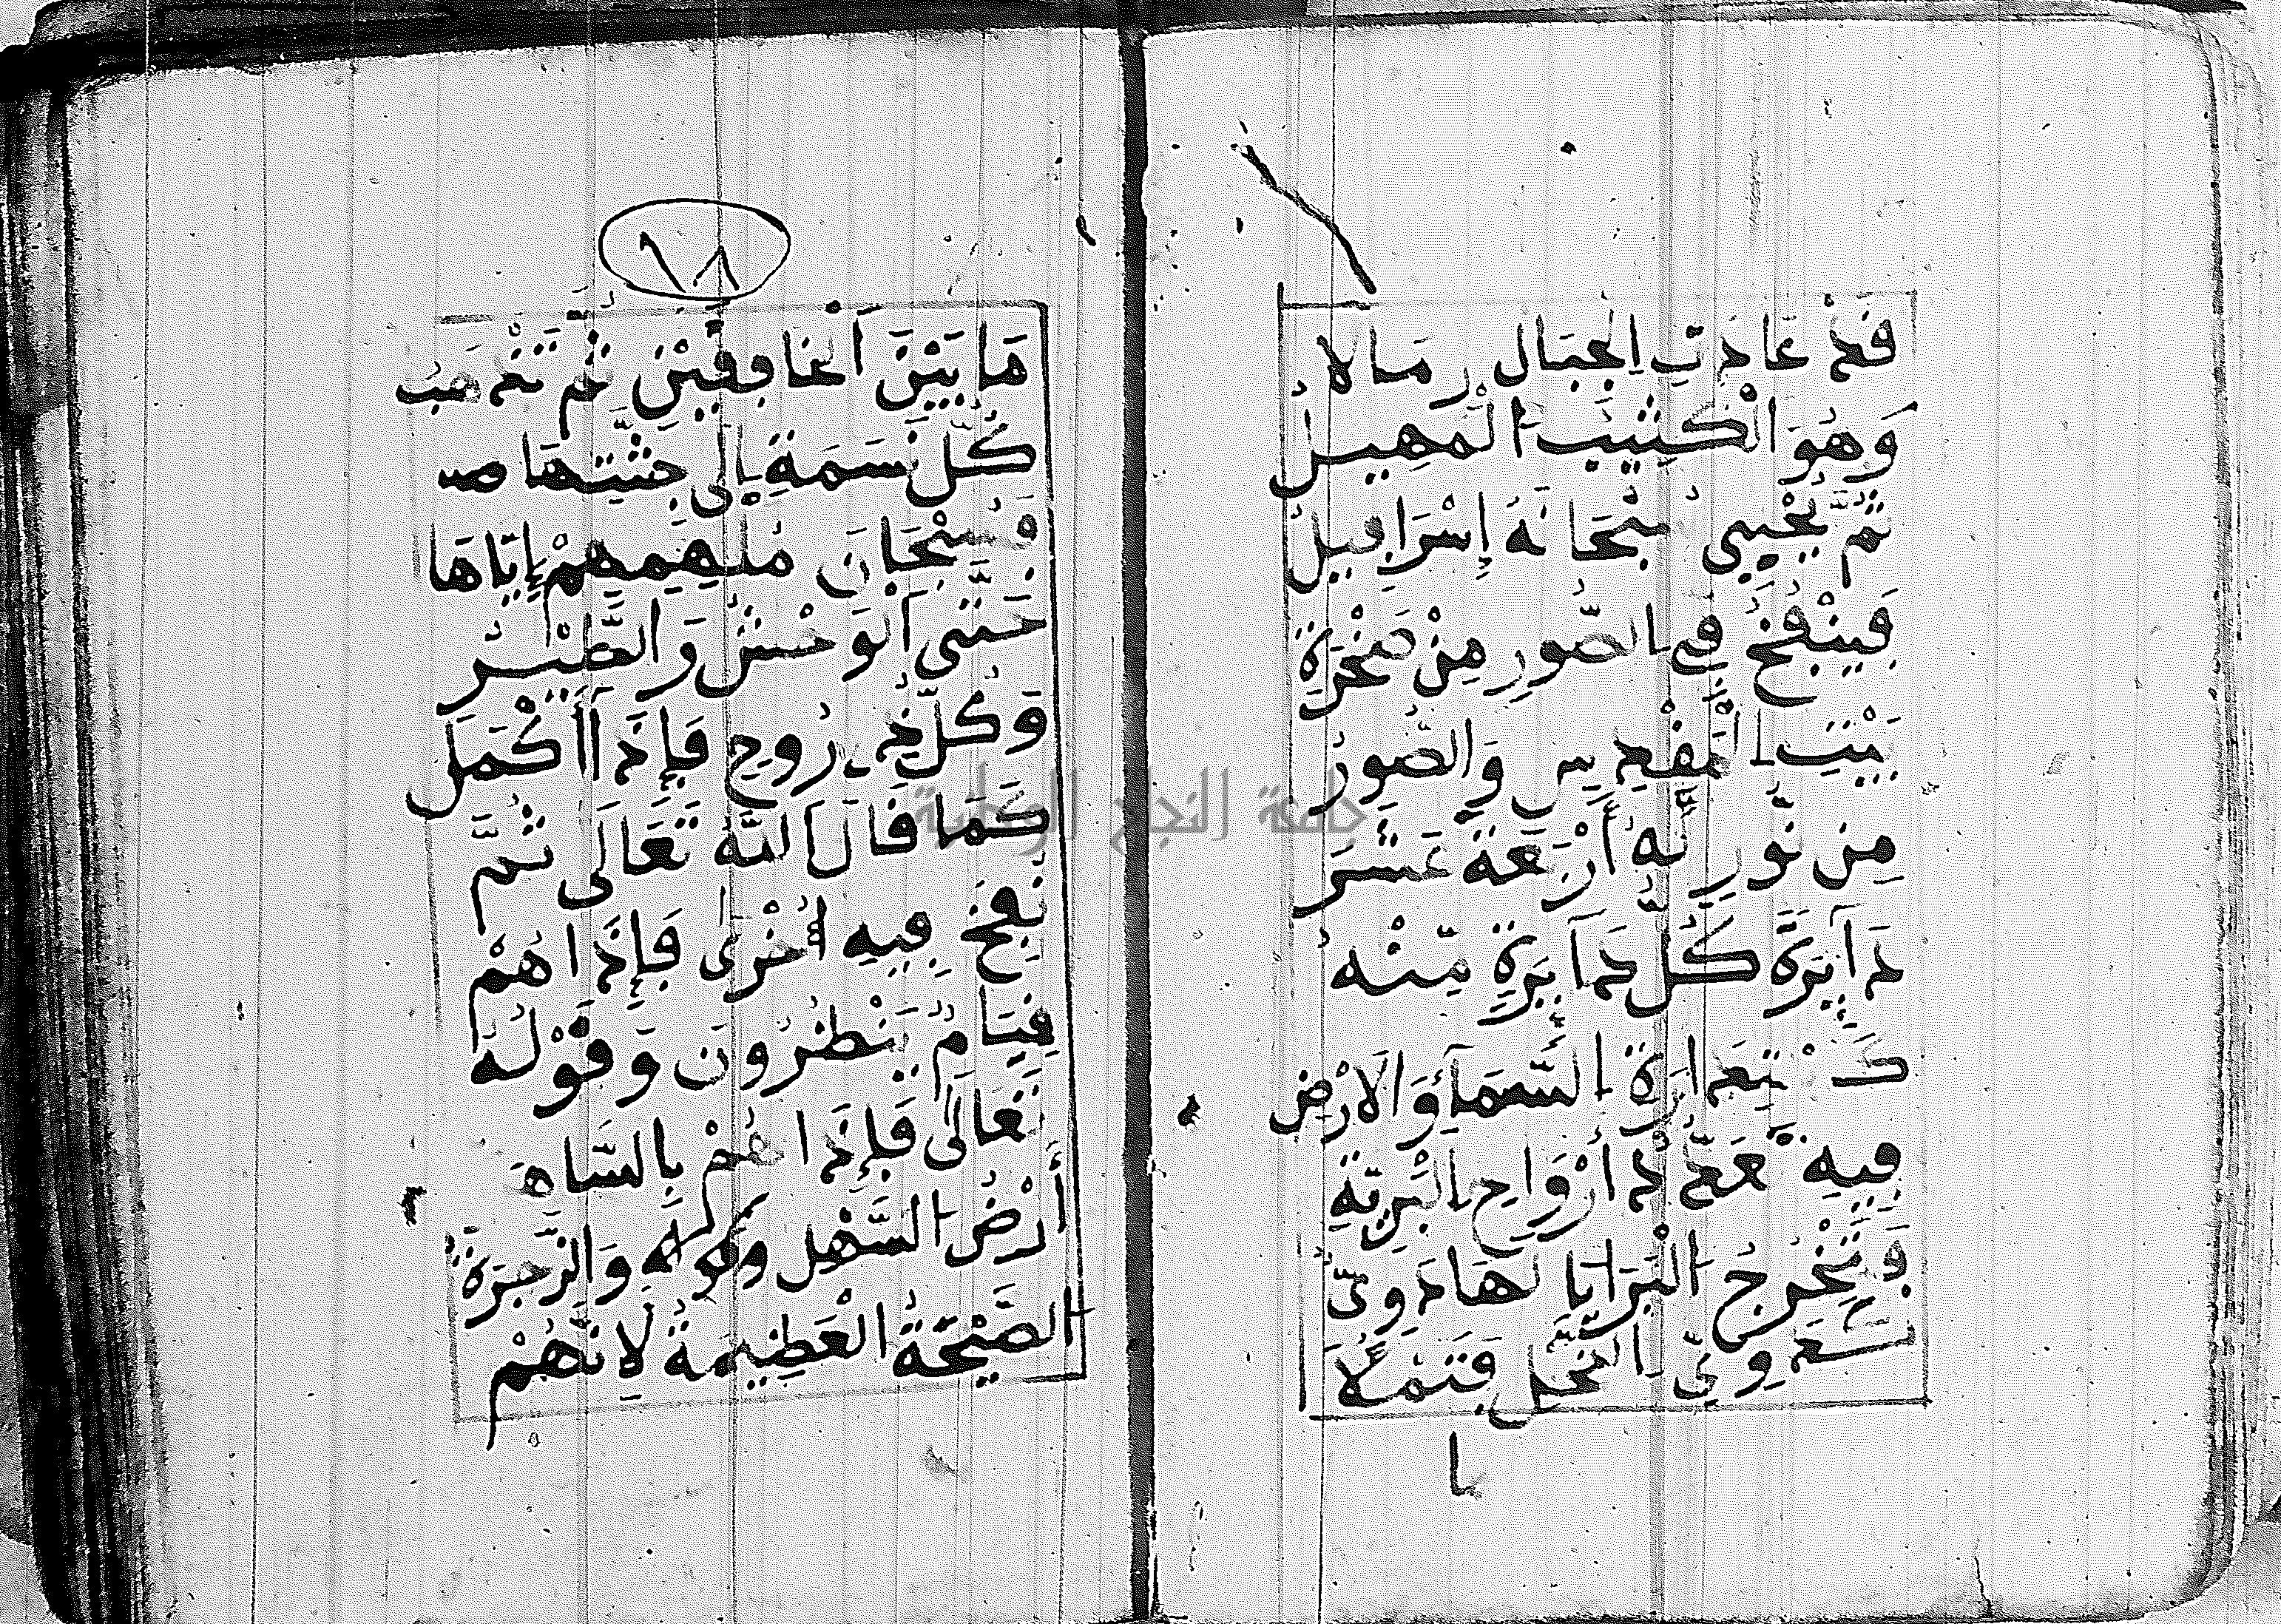 قَدْ عَادَتِ الْجِبَالُ رِمَالًا
وَهُوَ الْكَثِيبُ الْمَهِيلُ
ثُمَّ يُحْيِي سُبْحَانَهُ إِسْرَافِيلُ
فَيَنْفُخُ فِي الصُّورِ مِنْ صَخْرَةِ
بَيْتِ الْمَقْدِسِ وَالصُّورُ
مِن نُّورٍ لَهُ أَرْبَعَةَ عَشَرَ
دَآئِرَةً كُلُّ دَآئِرَةٍ مِّنْهُ
كَاسْتِدَارَةِ السَّمَآءِ وَالَارْضِ
فِيهِ عَدَدُ أَرْوَاحِ الْبَرِيَّةِ
وَتَخْرُجُ الْبَرَايَا لَهَا دَوِيٌّ
كَدَوِيِّ النَّحْلِ فَتَمْلَأُ
١٨
مَا بَيْنَ الْخَافِقَيْنِ ثُمَّ تَذْهَبُ
كُلُّ نَسَمَةٍ إِلَى جُثَّتِهَا صہ
فَسُبْحَانَ مُلْهِمِهِمْ إِيَّاهَا
حَتَّى الْوَحْشُ وَالطَّيْرُ
وَكُلُّ ذِي رُوحٍ فَإِذَا أَكْمَلَ
كَمَا قَالَ اللَّهُ تَعَالَى ثُمَّ
نُفِخَ فِيهِ أُخْرَى فَإِذَا هُمْ
قِيَامٌ يَنْظُرُونَ وَقَوْلُهُ
تَعَالَى فَإِذَا هُمْ بِالسَّاهِ
أَرْضُ السَّهْلِ وَقَوْلُهُ وَالزَّجْرَةُ
الصَّيْحَةُ الْعَظِيمَةُ لِانَّهُمْ
جامعة النجاح الوطنية